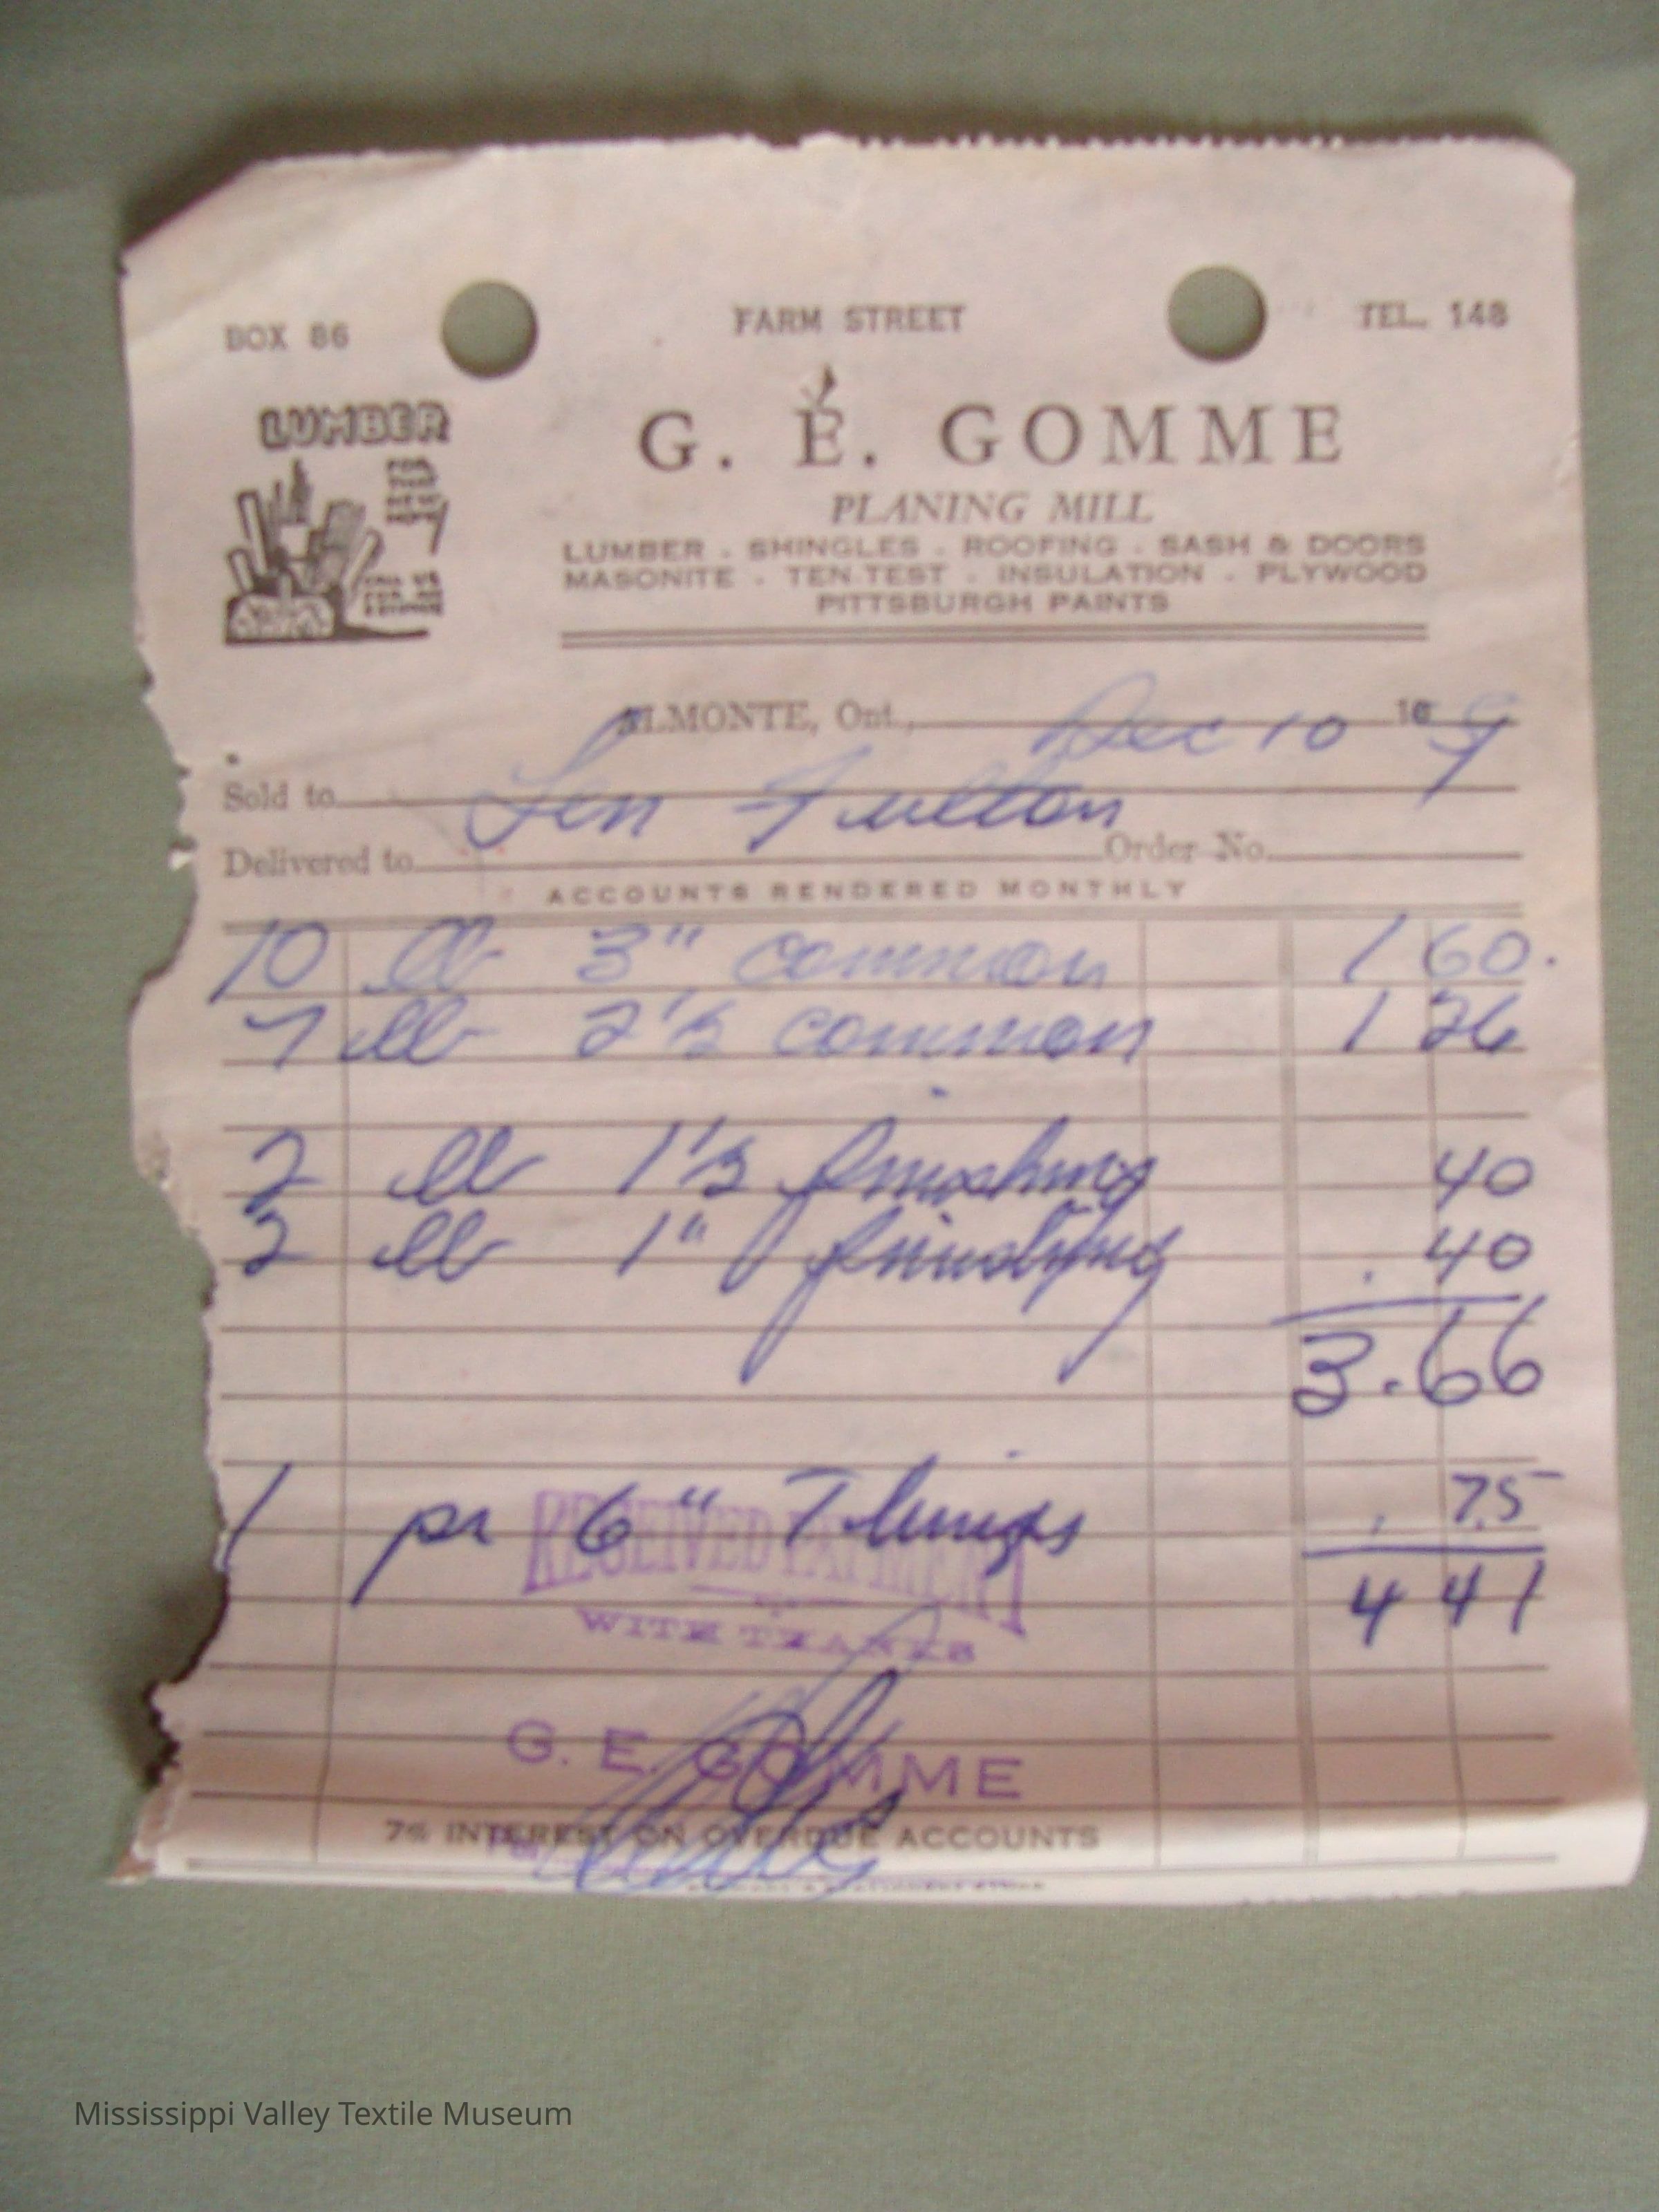 BOX 86 FARM STREET TEL. 148
LUMBER
FOR
G. E. GOMME
PLANING MILL
LUMBER - SHINGLES - ROOFING - SASH & DOORS
MASONITE - TEN-TEST - INSULATION - PLYWOOD
PITTSBURGH PAINTS
ALMONTE, Ont., Dec 10
Sold to Len Fulton
Delivered to Order No.
ACCOUNTS RENDERED MONTHLY
10 lb 3" common 1 60.
7 lb 2½ common 1 26
2 lb 1½ finishing 40
2 lb 1" finishing .40
3.66
1 pr 6" T hinges .75
RECEIVED PAYMENT
WITH THANKS
4 41
G. E. GOMME
7% INTEREST ON OVERDUE ACCOUNTS
Mississippi Valley Textile Museum